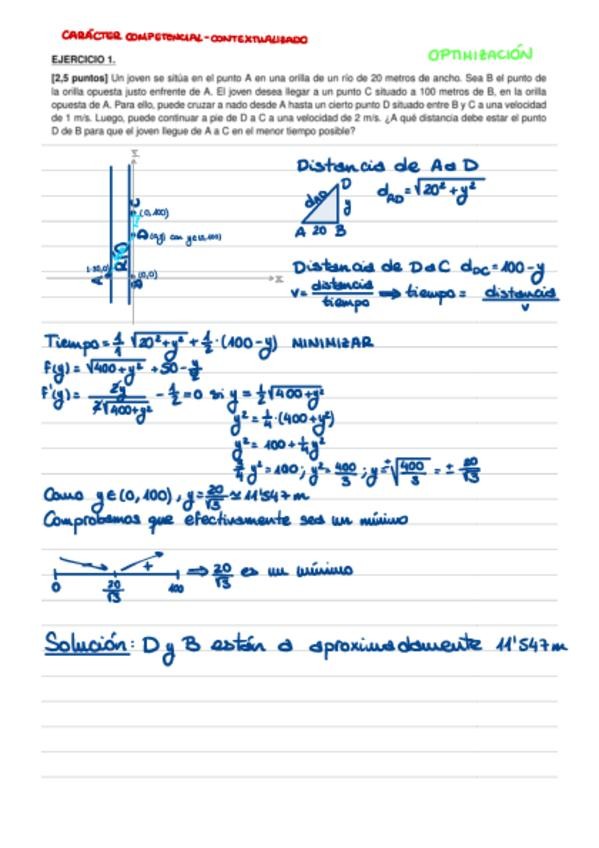 CARÁCTER COMPETENCIAL - CONTEXTUALIZADO
OPTIMIZACIÓN
EJERCICIO 1.
[2,5 puntos] Un joven se sitúa en el punto A en una orilla de un río de 20 metros de ancho. Sea B el punto de
la orilla opuesta justo enfrente de A. El joven desea llegar a un punto C situado a 100 metros de B, en la orilla
opuesta de A. Para ello, puede cruzar a nado desde A hasta un cierto punto D situado entre B y C a una velocidad
de 1 m/s. Luego, puede continuar a pie de D a C a una velocidad de 2 m/s. ¿A qué distancia debe estar el punto
D de B para que el joven llegue de A a C en el menor tiempo posible?
Y
C (0,100)
D (0,y) con y∈(0,100)
RÍO
A (-20,0)
B (0,0)
X
Distancia de A a D
d_AD D y
A 20 B
d_AD = √(20² + y²)
Distancia de D a C d_DC = 100 - y
v = distancia/tiempo ⟹ tiempo = distancia/v
Tiempo = 1/1 √(20² + y²) + 1/2 · (100 - y) MINIMIZAR
f(y) = √(400 + y²) + 50 - y/2
f'(y) = 2y/(2√(400 + y²)) - 1/2 = 0 si y = 1/2 √(400 + y²)
y² = 1/4 · (400 + y²)
y² = 100 + 1/4 y²
3/4 y² = 100; y² = 400/3; y = ±√(400/3) = ± 20/√3
Como y∈(0, 100), y = 20/√3 ≃ 11'547 m
Comprobamos que efectivamente sea un mínimo
- +
0 20/√3 100
⟹ 20/√3 es un mínimo
Solución: D y B están a aproximadamente 11'547 m